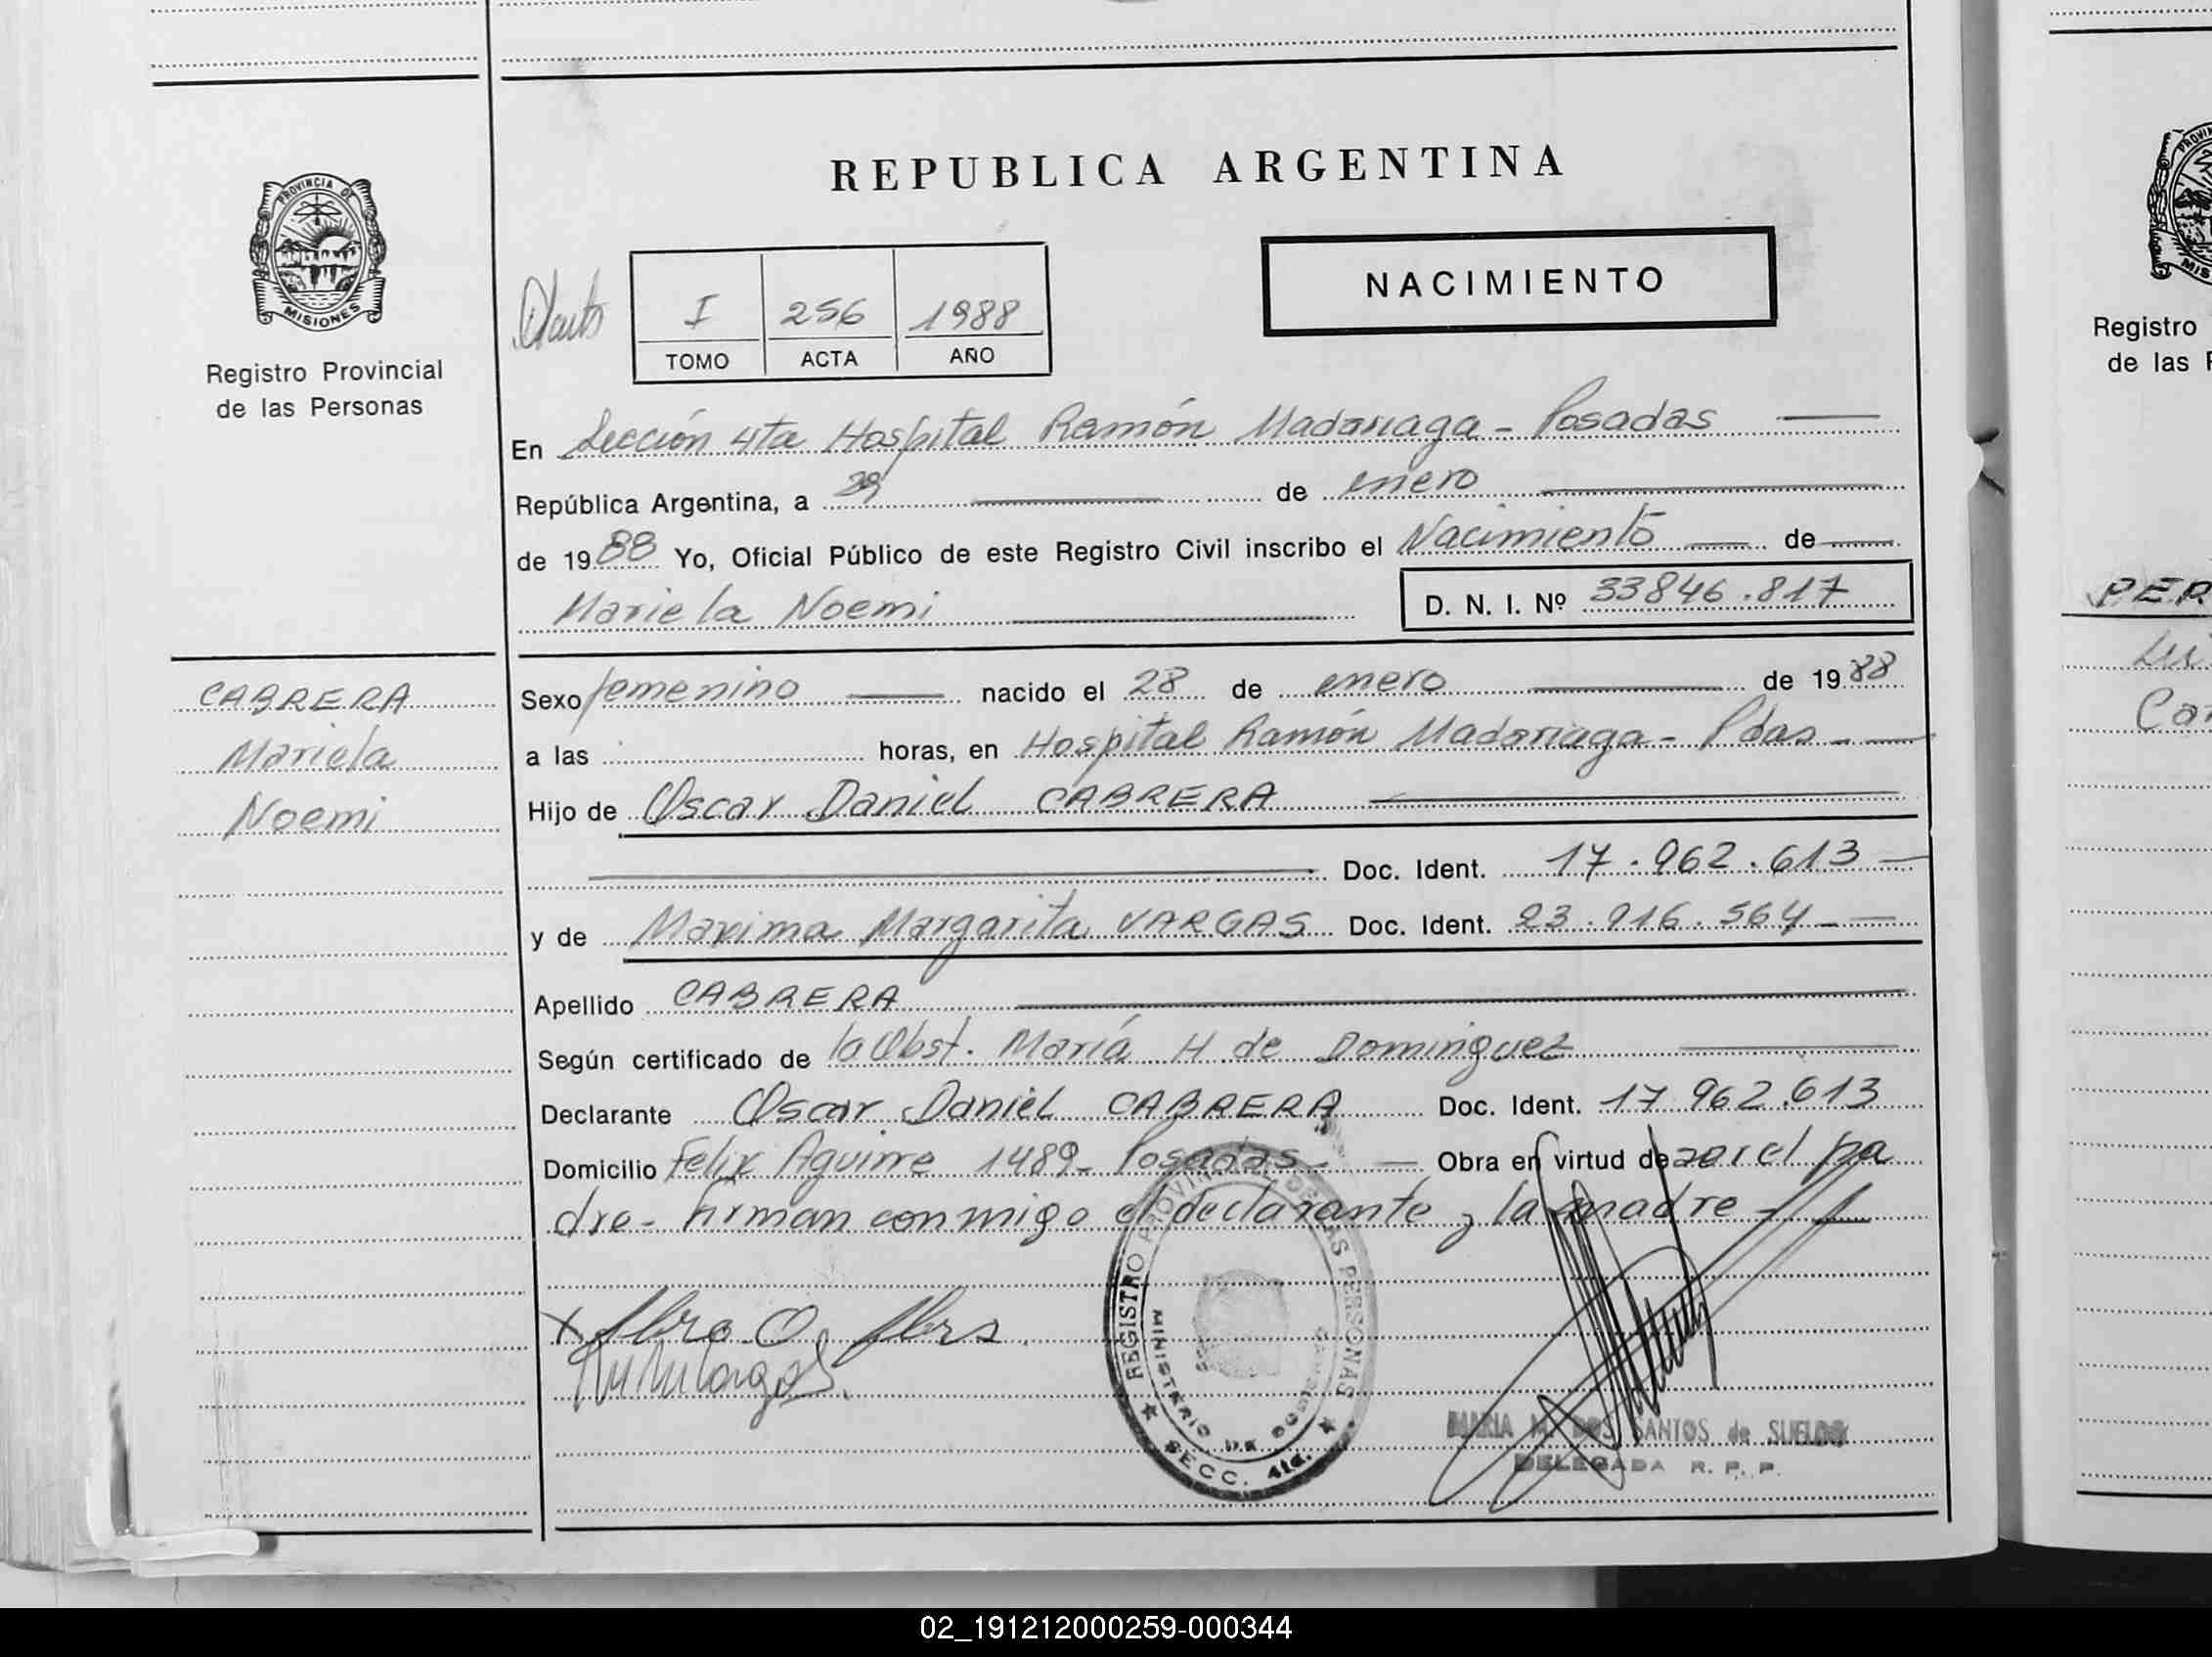 REPUBLICA ARGENTINA
PROVINCIA DE
MISIONES
Registro Provincial
de las Personas
I 256 1988
TOMO ACTA AÑO
NACIMIENTO
En Sección 4ta Hospital Ramón Madariaga - Posadas
República Argentina, a 29 de enero
de 1988 Yo, Oficial Público de este Registro Civil inscribo el Nacimiento de
Mariela Noemi D. N. I. Nº 33846.817
CABRERA
Mariela
Noemi
Sexo femenino nacido el 28 de enero de 1988
a las horas, en Hospital Ramón Madariaga - Pdas -
Hijo de Oscar Daniel CABRERA
Doc. Ident. 17.962.613
y de Maxima Margarita VARGAS Doc. Ident. 23.916.564
Apellido CABRERA
Según certificado de la Obst. María H de Dominguez
Declarante Oscar Daniel CABRERA Doc. Ident. 17 962.613
Domicilio Felix Aguirre 1489 - Posadas - Obra en virtud de ser el pa
dre - firman conmigo el declarante y la madre -
REGISTRO PROVINCIAL DE LAS PERSONAS
MINISTERIO DE GOBIERNO
SECC. 4ta.
MARIA M. DOS SANTOS de SUELDO
DELEGADA R. P. P.
Registro
de las
PER
Car
02_191212000259-000344